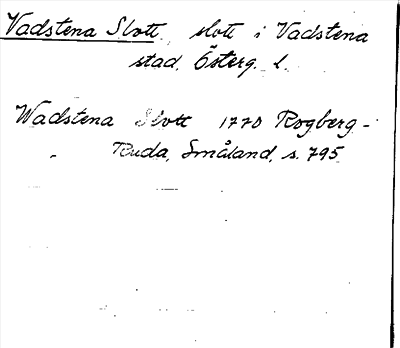 Vadstena Slott, slott i Vadstena
stad, Österg. l.
Wadstena Slott 1770 Rogberg-
Ruda, Småland, s. 795